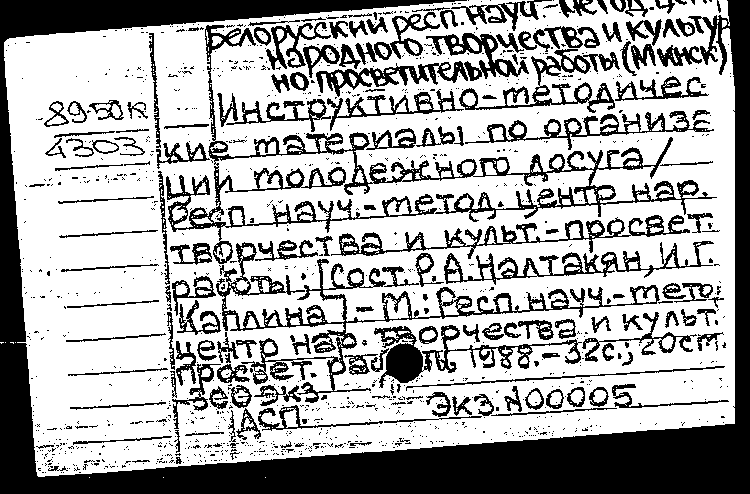 Белорусский респ. науч.-метод. цен
народного творчества и культур
но-просветительной работы (Минск)
89-50к
Инструктивно-методичес
4303
кие материалы по организа
ции молодежного досуга /
Респ. науч.-метод. центр нар.
творчества и культ.-просвет.
работы; [Сост. Р.А. Налтакян, И.Г.
Каплина]. - М.: Респ. науч.-метод
центр нар. творчества и культ.
просвет. работы, 1988. - 32с.; 20см.
300 экз.
ДСП. Экз. N00005.